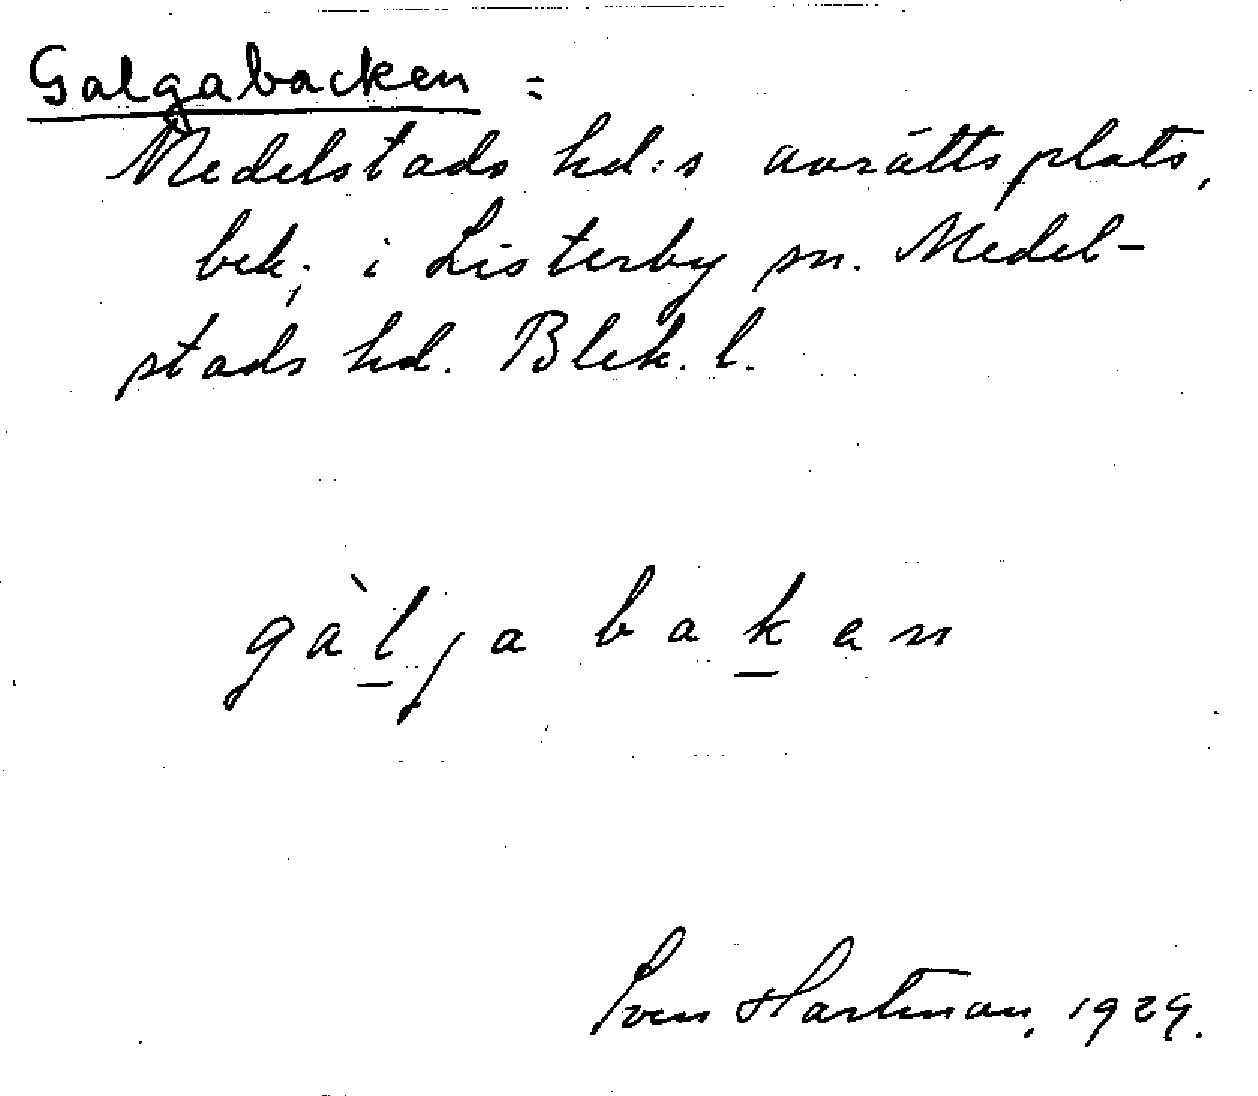 Galgabacken =
Medelstads hd:s avrättsplats,
bek. i Listerby sn. Medel-
stads hd. Blek. l.
gàlja bakan
Sven Hartman, 1929.